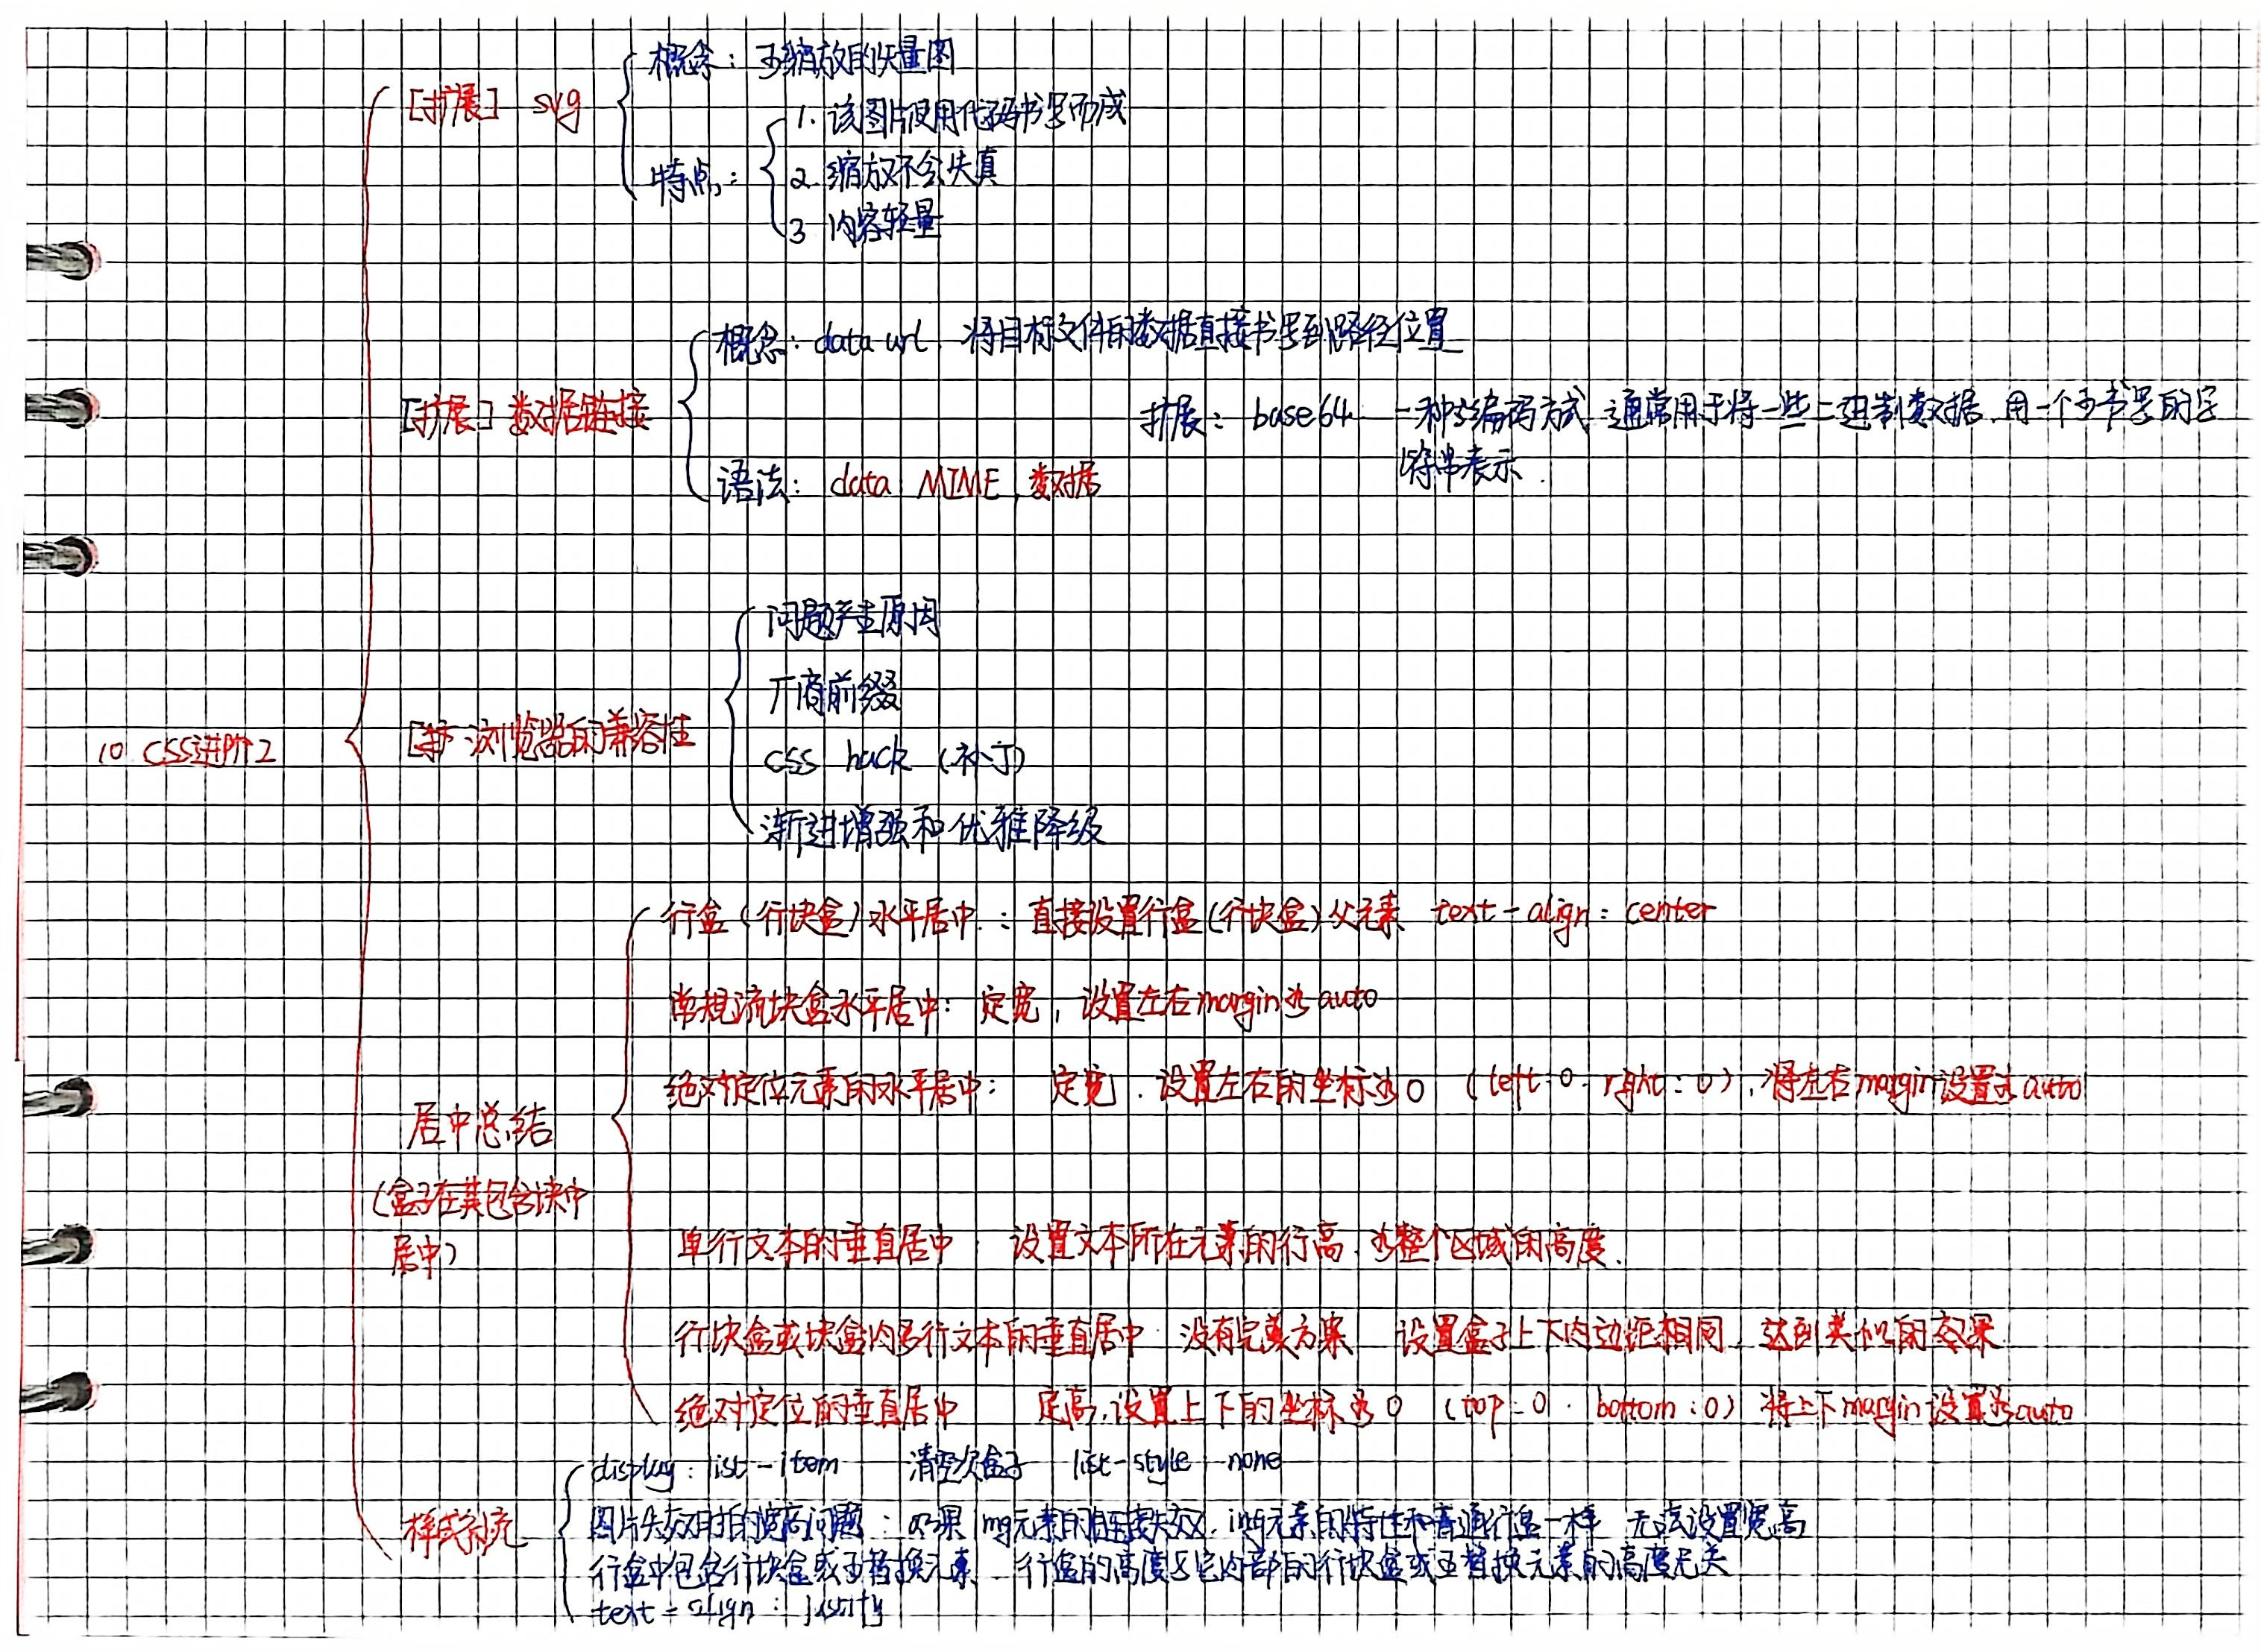 10. CSS进阶2
[扩展] svg
概念: 可缩放的矢量图
特点:
1. 该图片使用代码书写而成
2. 缩放不会失真
3. 内容轻量
[扩展] 数据链接
概念: data url, 将目标文件的数据直接书写到路径位置
语法: data: MIME, 数据
扩展: base64 一种编码方式 通常用于将一些二进制数据, 用一个可书写的字
符串表示.
[扩] 浏览器的兼容性
问题产生原因
厂商前缀
css hack (补丁)
渐进增强和优雅降级
居中总结
(盒子在其包含块中
居中)
行盒(行块盒)水平居中: 直接设置行盒(行块盒)父元素 text-align: center
常规流块盒水平居中: 定宽, 设置左右margin为auto
绝对定位元素的水平居中: 定宽, 设置左右的坐标为0 (left:0, right:0), 将左右margin设置为auto
单行文本的垂直居中: 设置文本所在元素的行高, 为整个区域的高度.
行块盒或块盒内多行文本的垂直居中: 没有完美方案 设置盒子上下内边距相同, 达到类似的效果
绝对定位的垂直居中: 定高, 设置上下的坐标为0 (top:0, bottom:0) 将上下margin设置为auto
样式补充
display: list-item 清空次盒子 list-style: none
图片失效时的宽高问题: 如果img元素的链接失效, img元素的特性和普通行盒一样 无法设置宽高
行盒中包含行块盒或可替换元素 行盒的高度与它内部的行块盒或可替换元素的高度无关
text-align: justify